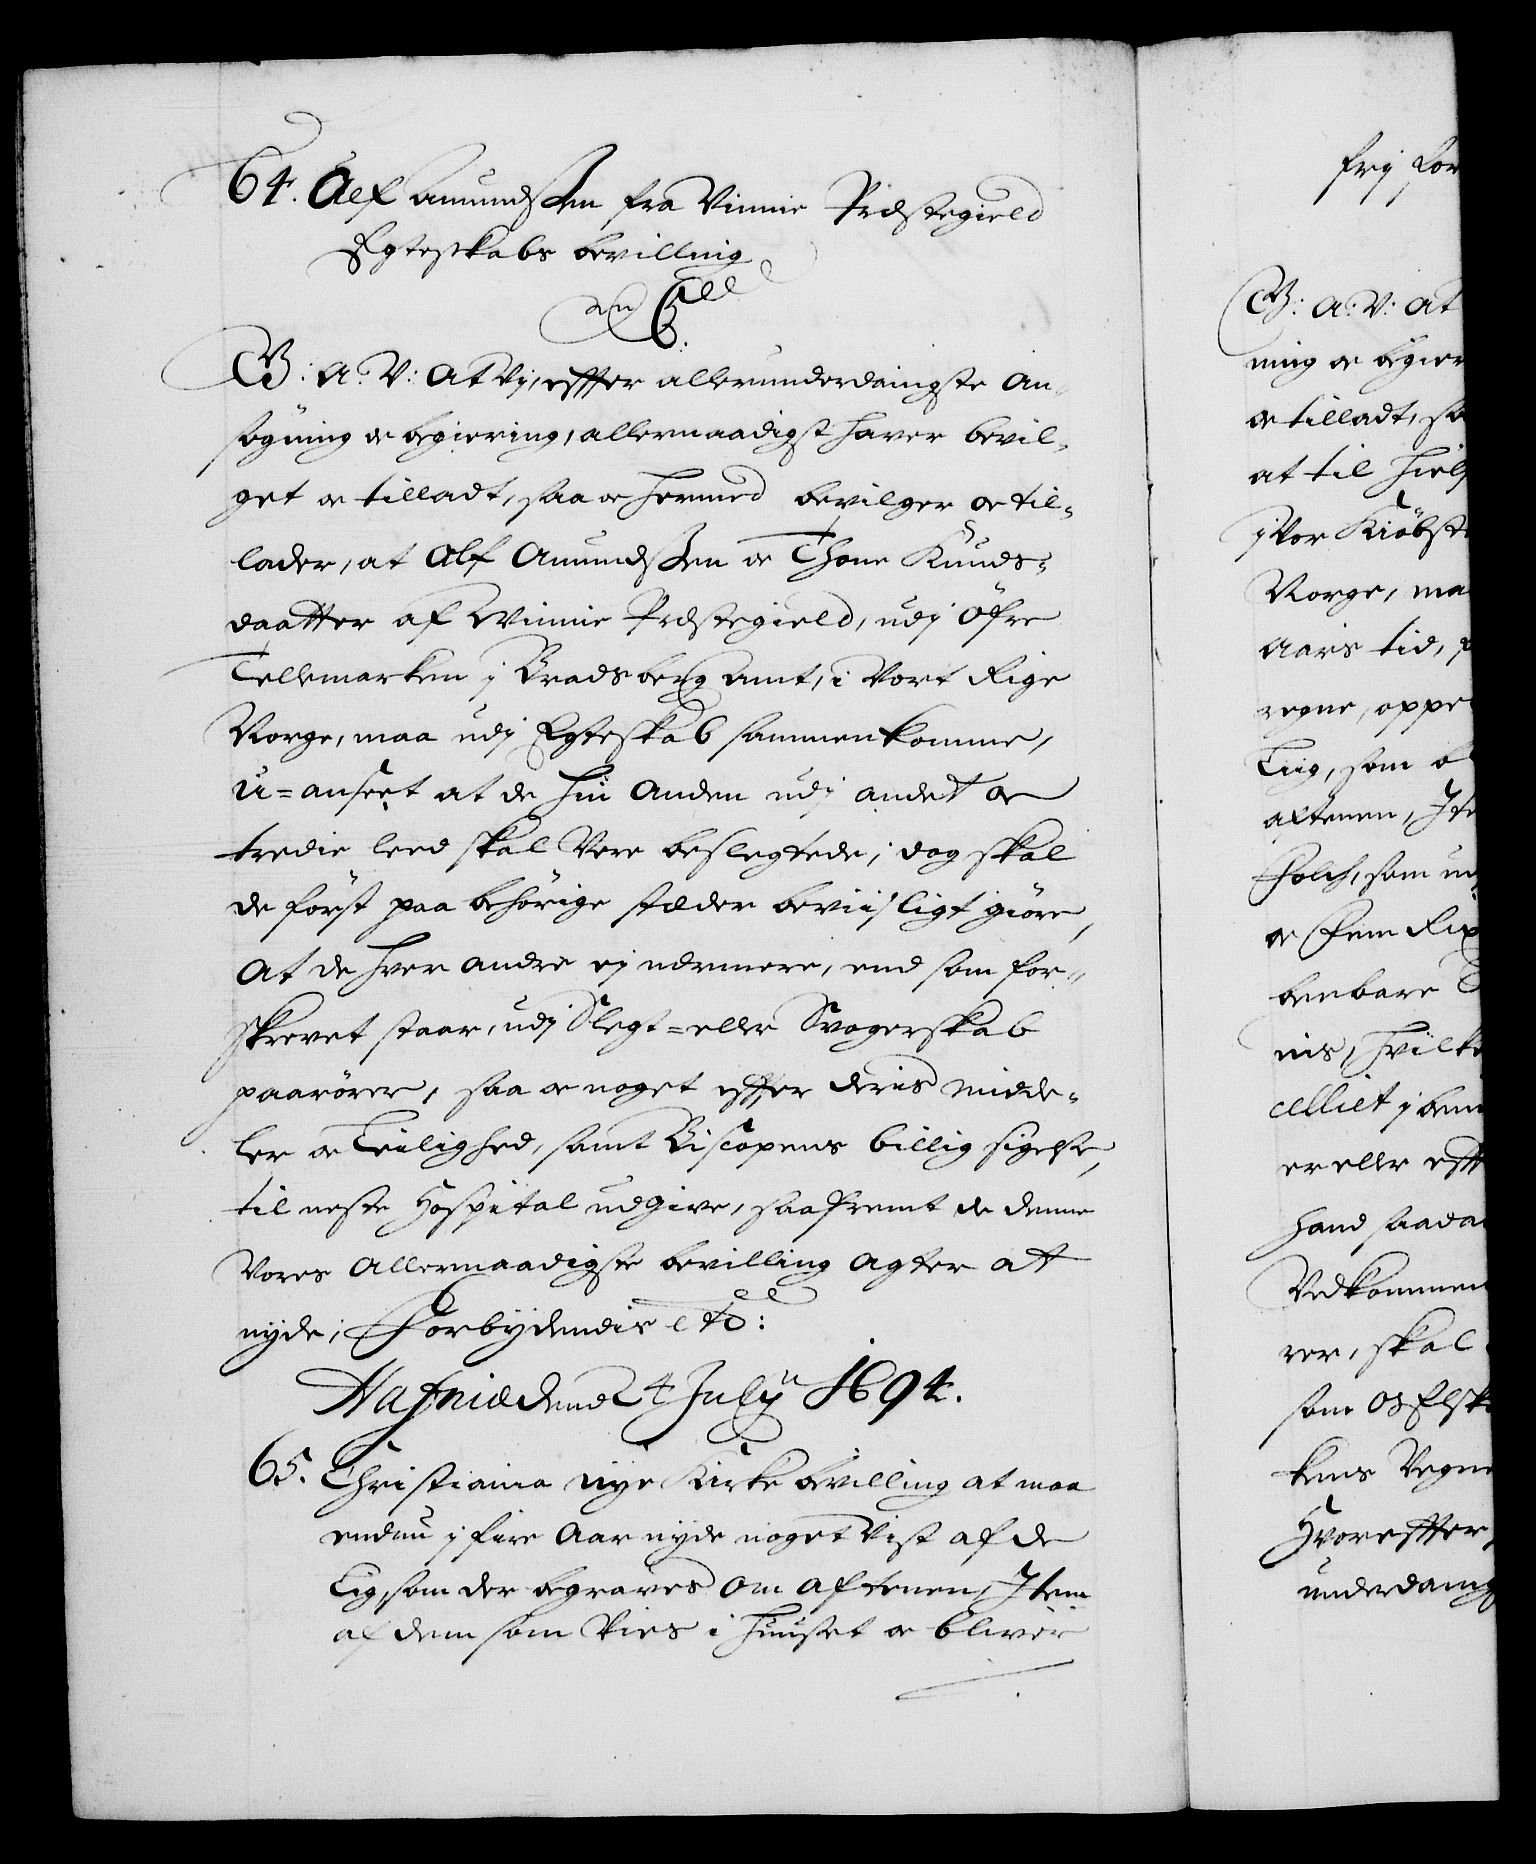 64. Alf Amundssen fra Vinnie Præstegield
Egteskabs bevilling
G: A: V: At Vj, effter allerunderdanigste an-
søgning oc begiering, allernaadigst hafver bevil-
get oc tilladt, saa oc hermed bevilger oc til-
lader, at Alf Amundssen oc Thone Knuds-
daatter af Winnie Præstegield, udj Öfre
Tellemarken j Bradsberg amt, i Vort Rige
Norge, maa udj Egteskab sammenkomme,
U=anseet at de hin Anden udj andet oc
tredie leed skal Vere beslegtede; dog skal
de först paa behörige stæder beviisligt giöre,
At de hver andre ej nærmere, end som for-
skrevet staar, udj Slegt=eller Svogerskab
paarörer, saa oc noget effter deris midde-
ler oc Leilighed, samt Biscopens billig sigelse,
til neste Hospital udgive, saafremt de denne
Vores Allernaadigste bevilling agter at
nyde; Forbydendis etc:
Hafniæ dend 4 July 1694.
65. Christiania nye Kirke bevilling at maa
endnu j fire Aar nyde noget Vist af de
Lig, som der begraves om Aftenen, Item
af dem som Vies i Huuset oc bliver
frj for
G: A: V: At
ning oc begier
oc tilladt, sa
at til hielp
j Vor Kiöbst
Norge, ma
Aars tid,
regne, oppe
Liig, som
aftenen, Ite
Folch, som ud
oc Fem Rix
benbare
nis, hvilke
celliet j
er eller efft
hand saada
Vedkommen
rer, skal
som Os Elske
kens Vegne
Hvoreffter,
underdanig